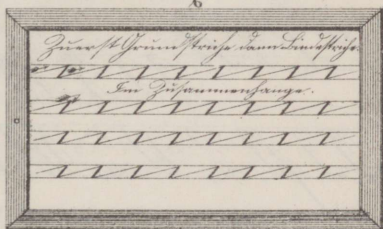 6
Zuerst Grundstriche dann Bindestriche.
Im Zusammenhange.